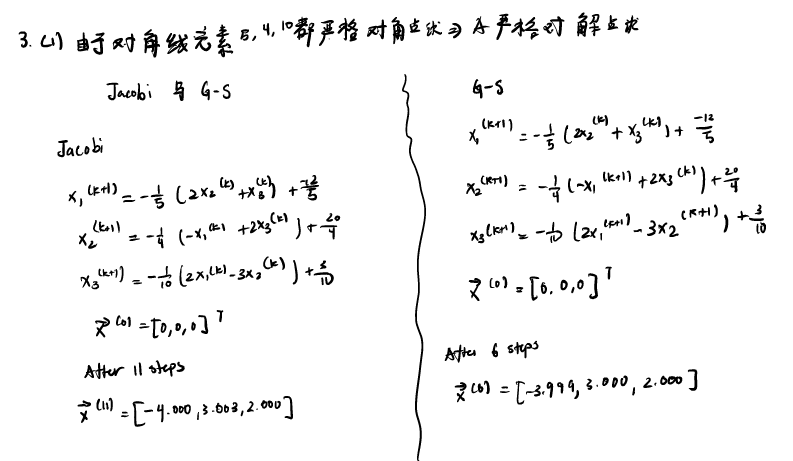 3. (1) 由于对角线元素 5, 4, 10 都严格对角占优 ⇒ A 严格对角占优
Jacobi 与 G-S
Jacobi
x₁^(k+1) = -1/5 (2x₂^(k) + x₃^(k)) + -12/5
x₂^(k+1) = -1/4 (-x₁^(k) + 2x₃^(k)) + 20/4
x₃^(k+1) = -1/10 (2x₁^(k) - 3x₂^(k)) + 3/10
x⃗^(0) = [0,0,0]^T
After 11 steps
x⃗^(11) = [-4.000, 3.003, 2.000]
G-S
x₁^(k+1) = -1/5 (2x₂^(k) + x₃^(k)) + -12/5
x₂^(k+1) = -1/4 (-x₁^(k+1) + 2x₃^(k)) + 20/4
x₃^(k+1) = -1/10 (2x₁^(k+1) - 3x₂^(k+1)) + 3/10
x⃗^(0) = [0,0,0]^T
After 6 steps
x⃗^(6) = [-3.999, 3.000, 2.000]